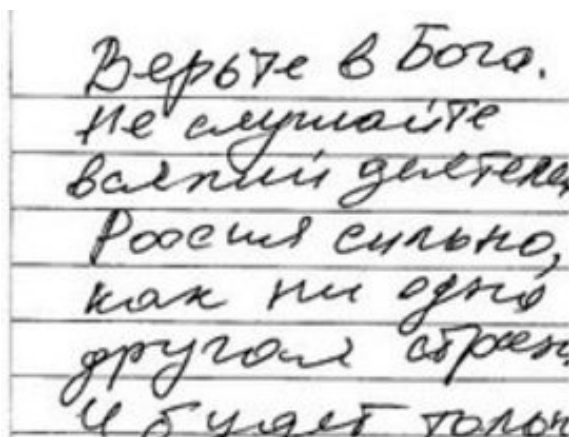 Верьте в Бога.
Не слушайте
всякий деятеле
Россия сильна,
как ни одна
другая стран
И будет тольк